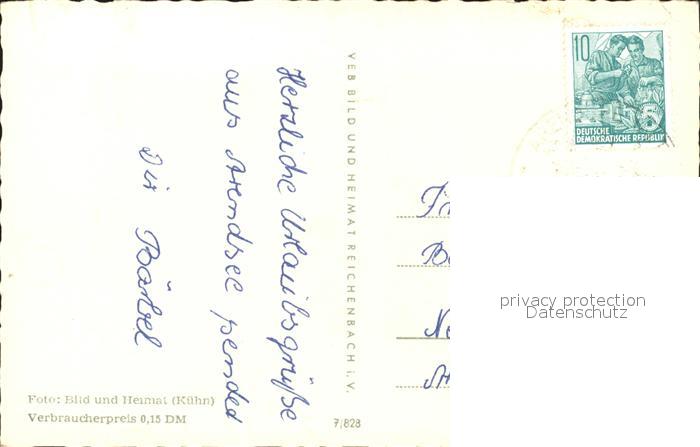 Herzliche Urlaubsgrüße
aus Arendsee sendet
Dir Bärbel
VEB BILD UND HEIMAT REICHENBACH i. V.
10
DEUTSCHE
DEMOKRATISCHE REPUBLIK
privacy protection
Datenschutz
Foto: Bild und Heimat (Kühn)
Verbraucherpreis 0,15 DM
7/828